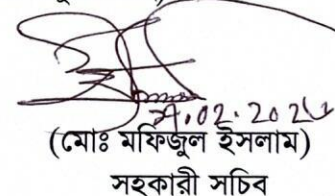 02.202
(মোঃ মফিজুল ইসলাম)
সহকারী সচিব